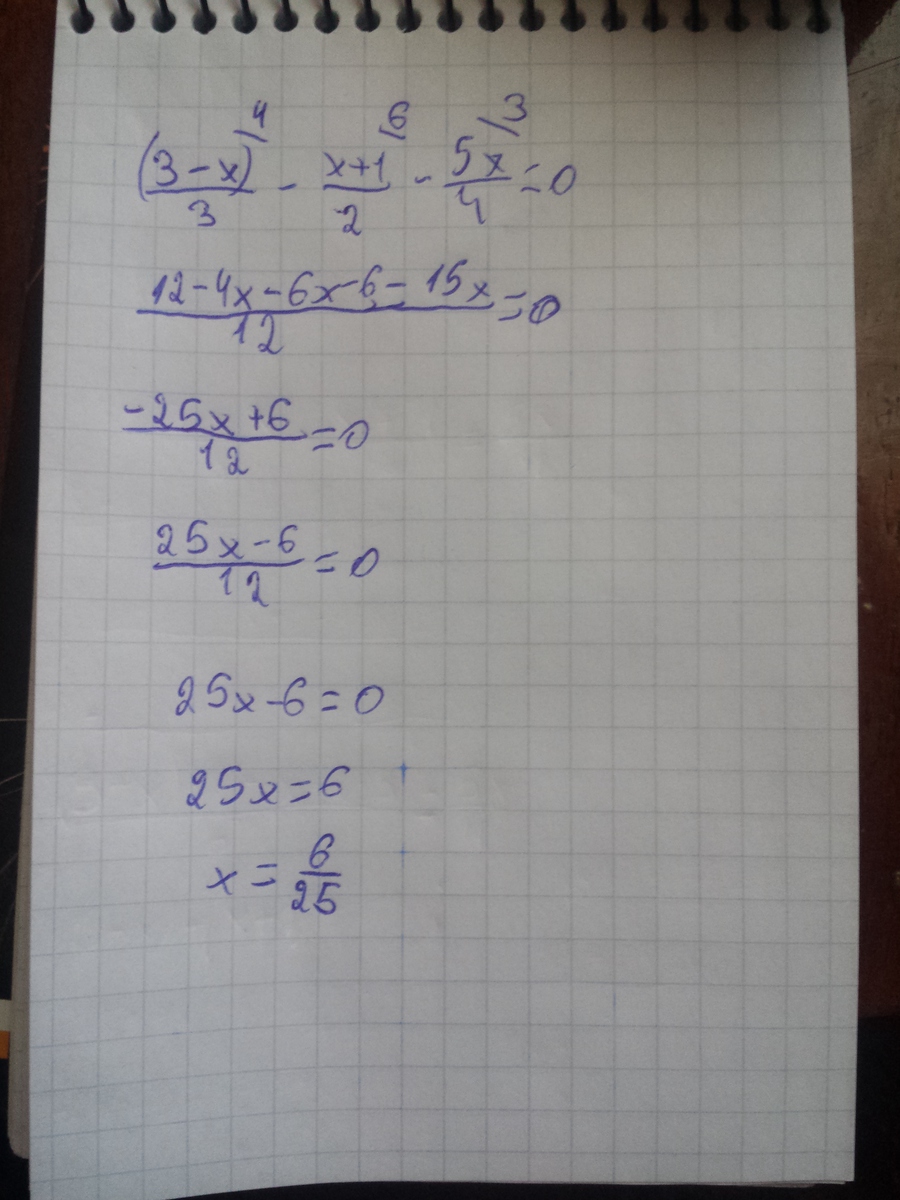 (3-x)/4 / 3 - x+1/6 / 2 - 5x/3 / 4 = 0
12-4x-6x-6-15x / 12 = 0
-25x+6 / 12 = 0
25x-6 / 12 = 0
25x-6=0
25x=6
x = 6/25